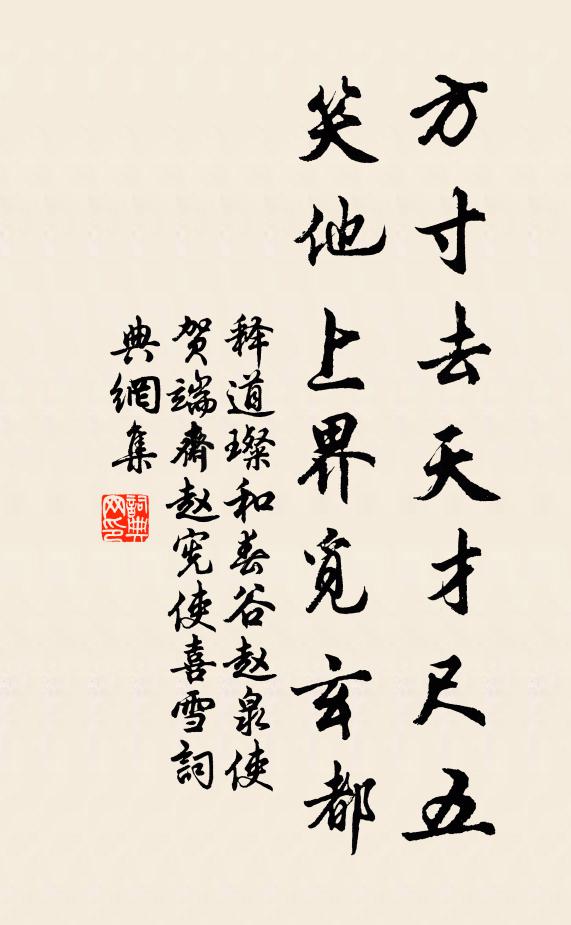 方寸去天才尺五
笑他上界觅玄都
释道璨和春谷赵泉使
贺端斋赵宪使喜雪詞
典網集
詞典
网印